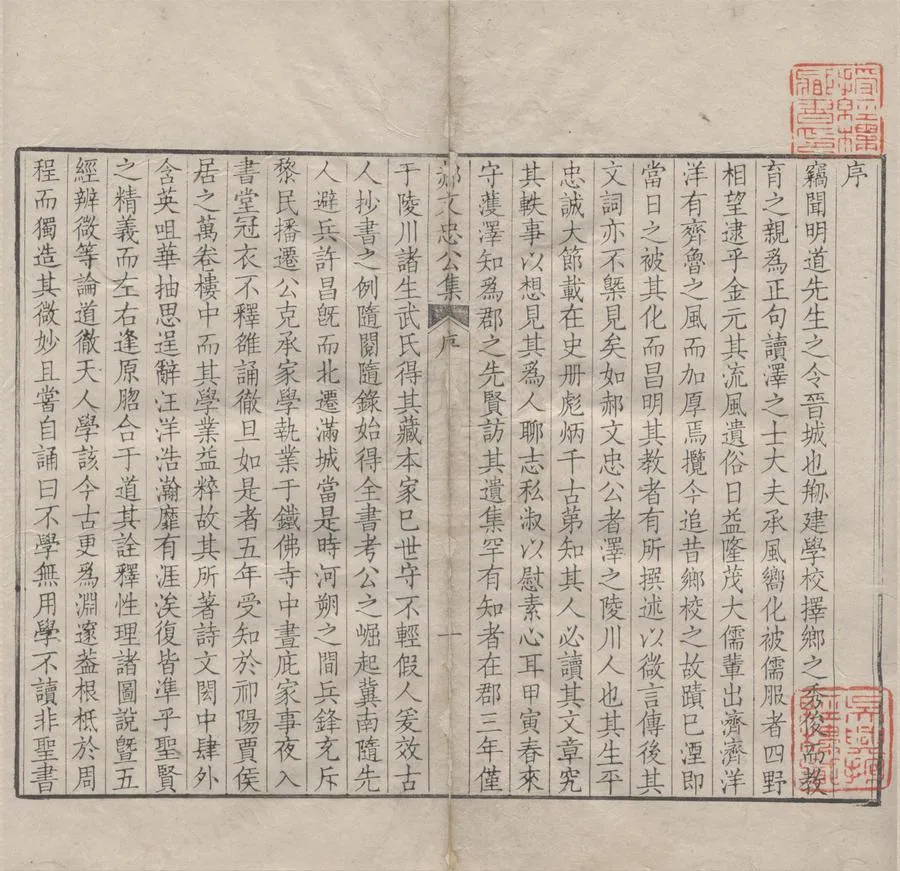 序
竊聞明道先生之令晉城也剙建學校擇鄉之秀俊而教
育之親爲正句讀澤之士大夫承風嚮化被儒服者四野
相望逮乎金元其流風遺俗日益隆茂大儒輩出濟濟洋
洋有齊魯之風而加厚焉攬今追昔鄉校之故蹟已湮即
當日之被其化而昌明其教者有所撰述以微言傳後其
文詞亦不槩見矣如郝文忠公者澤之陵川人也其生平
忠誠大節載在史册彪炳千古第知其人必讀其文章究
其軼事以想見其爲人聊志私淑以慰素心耳甲寅春來
守濩澤知爲郡之先賢訪其遺集罕有知者在郡三年僅
郝文忠公集 序 一
于陵川諸生武氏得其藏本家已世守不輕假人爰效古
人抄書之例隨閱隨錄始得全書考公之崛起冀南隨先
人避兵許昌旣而北遷滿城當是時河朔之間兵鋒充斥
黎民播遷公克承家學執業于鐵佛寺中晝庇家事夜入
書堂冠衣不釋雒誦徹旦如是者五年受知於祁陽賈侯
居之萬卷樓中而其學業益粹故其所著詩文閎中肆外
含英咀華抽思逞辭汪洋浩瀚靡有涯涘復皆準乎聖賢
之精義而左右逢原脗合于道其詮釋性理諸圖說曁五
經辨微等論道徹天人學該今古更爲淵邃葢根柢於周
程而獨造其微妙且嘗自誦曰不學無用學不讀非聖書